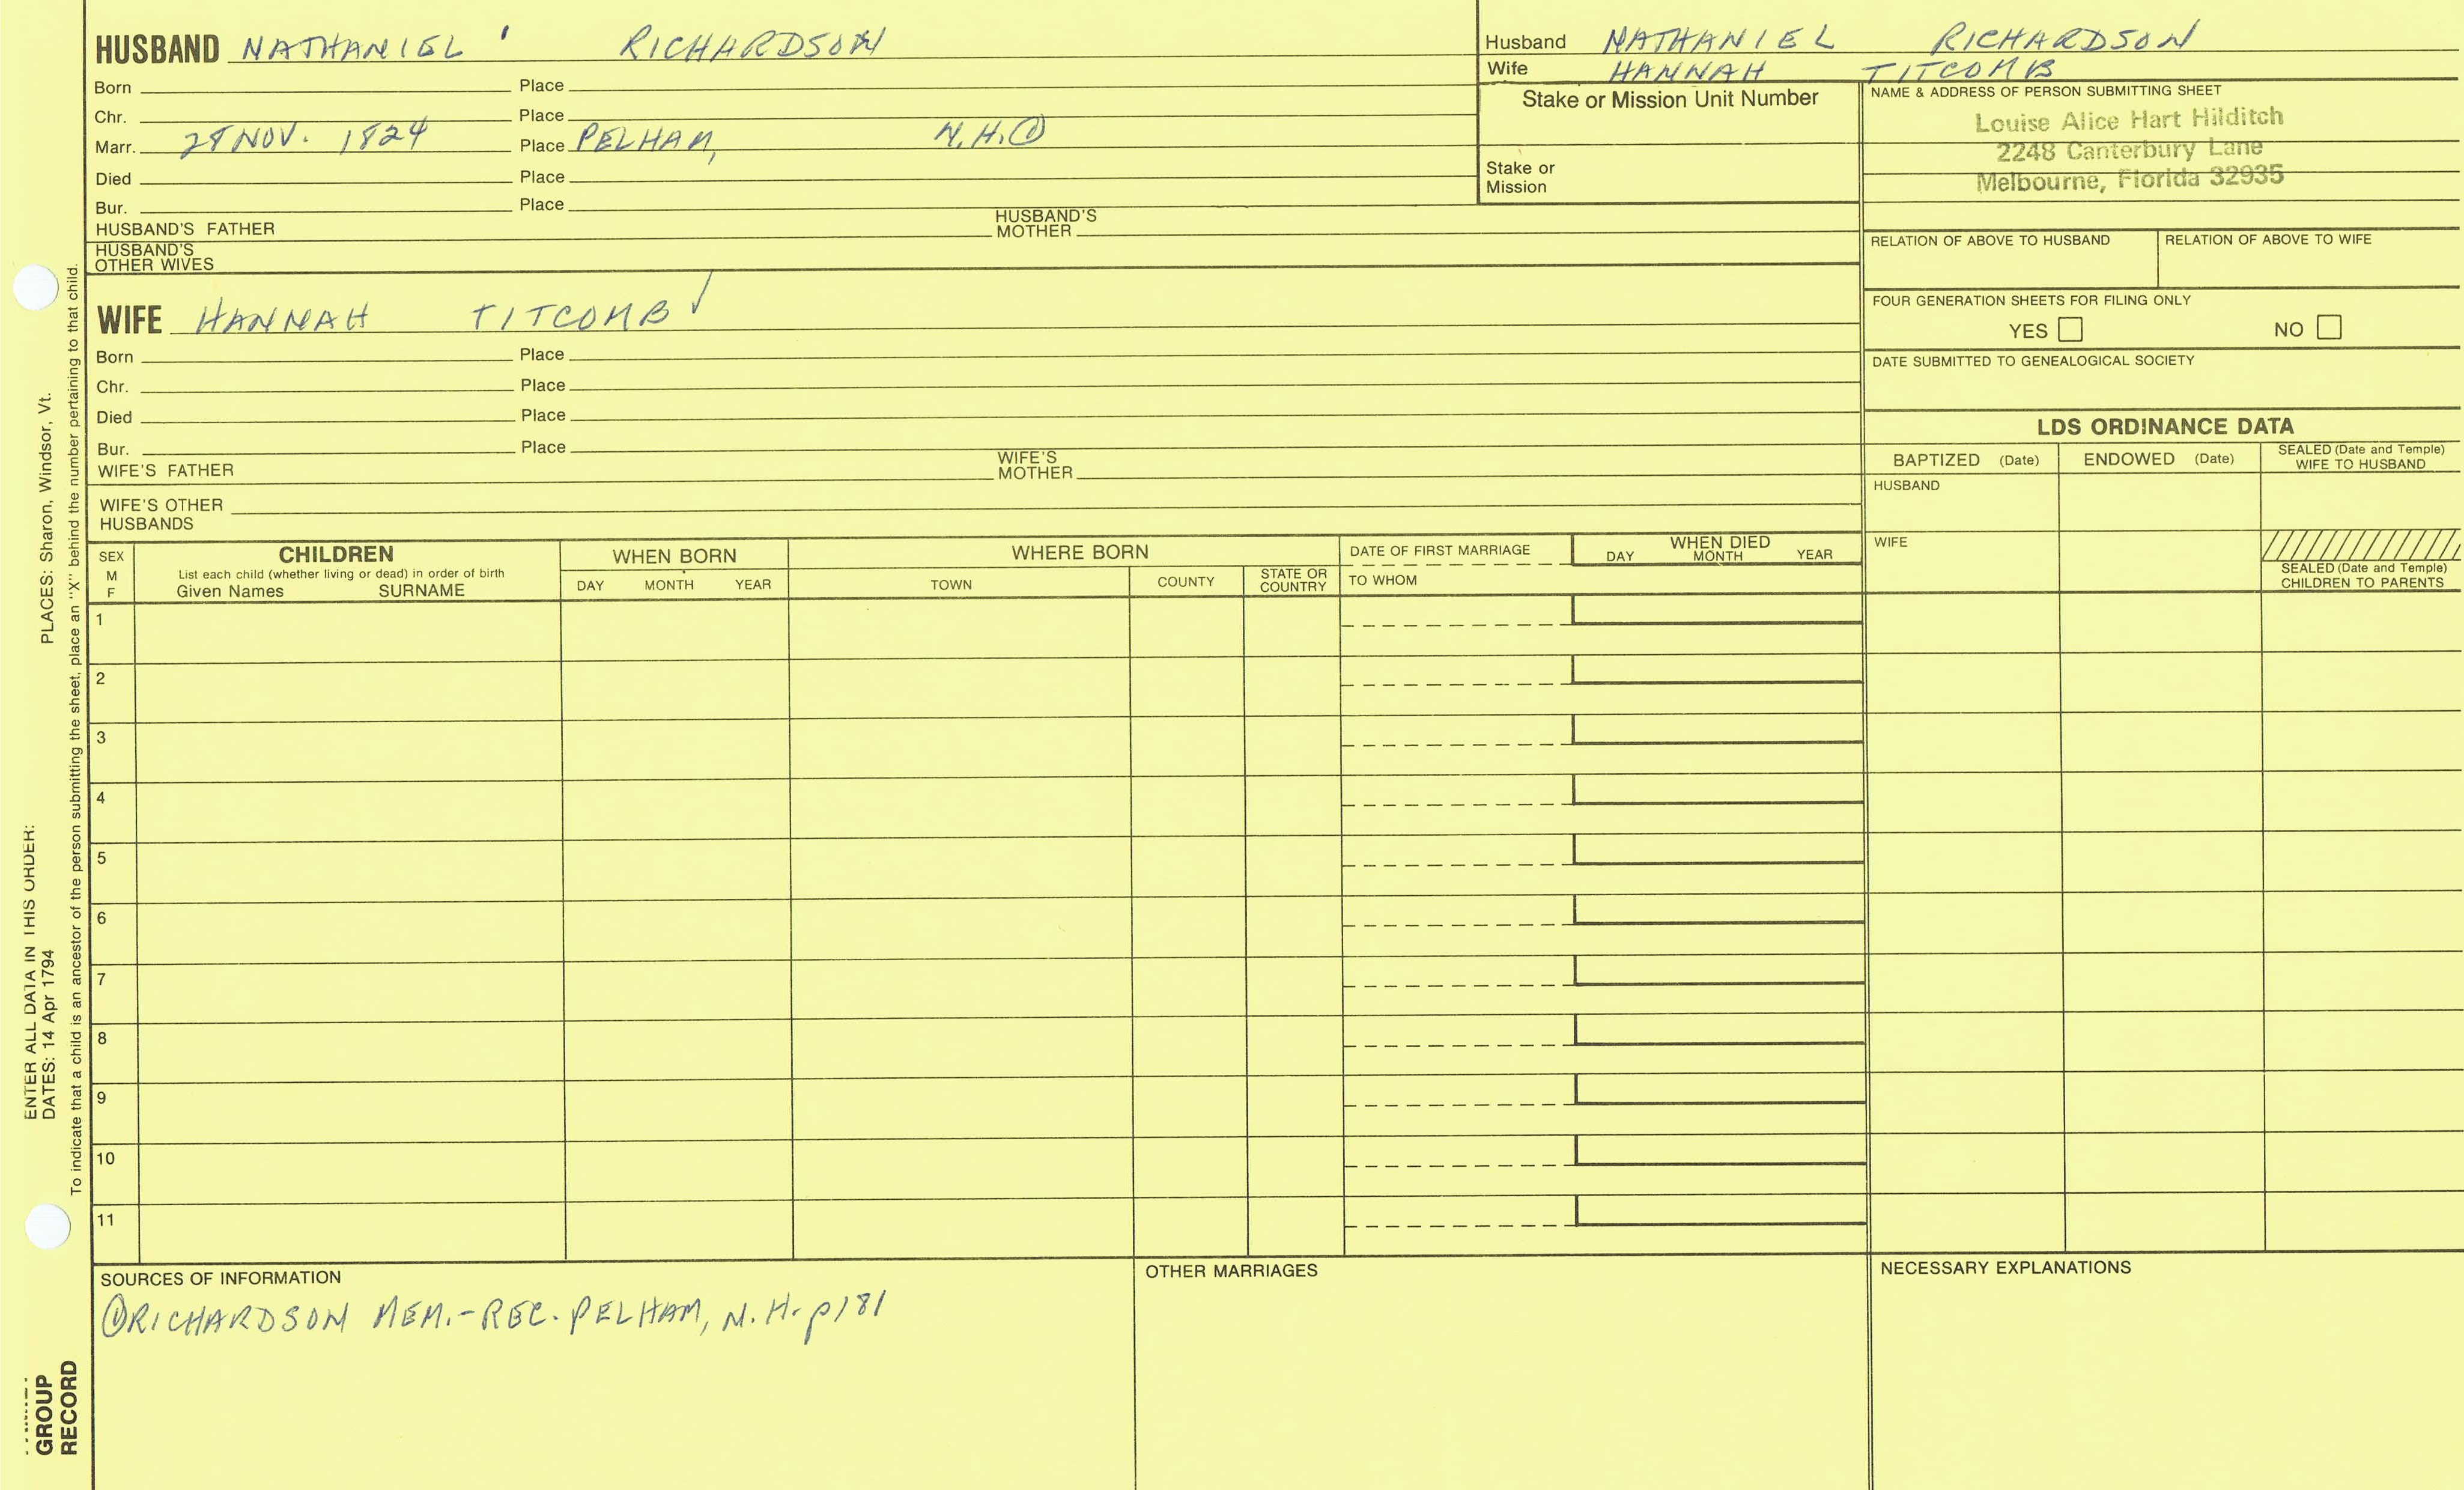 HUSBAND NATHANIEL ' RICHARDSON
Born Place
Chr. Place
Marr. 28 NOV. 1824 Place PELHAM, N.H. ①
Died Place
Bur. Place
HUSBAND'S FATHER HUSBAND'S MOTHER
HUSBAND'S OTHER WIVES
WIFE HANNAH TITCOMB ✓
Born Place
Chr. Place
Died Place
Bur. Place
WIFE'S FATHER WIFE'S MOTHER
WIFE'S OTHER HUSBANDS
Husband NATHANIEL RICHARDSON
Wife HANNAH TITCOMB
Stake or Mission Unit Number
Stake or
Mission
NAME & ADDRESS OF PERSON SUBMITTING SHEET
Louise Alice Hart Hilditch
2248 Canterbury Lane
Melbourne, Florida 32935
RELATION OF ABOVE TO HUSBAND RELATION OF ABOVE TO WIFE
FOUR GENERATION SHEETS FOR FILING ONLY
YES NO
DATE SUBMITTED TO GENEALOGICAL SOCIETY
LDS ORDINANCE DATA
BAPTIZED (Date) ENDOWED (Date) SEALED (Date and Temple) WIFE TO HUSBAND
HUSBAND
WIFE
SEALED (Date and Temple)
CHILDREN TO PARENTS
SEX
M
F
CHILDREN
List each child (whether living or dead) in order of birth
Given Names SURNAME
WHEN BORN
DAY MONTH YEAR
WHERE BORN
TOWN COUNTY STATE OR COUNTRY
DATE OF FIRST MARRIAGE
TO WHOM
WHEN DIED
DAY MONTH YEAR
1
2
3
4
5
6
7
8
9
10
11
SOURCES OF INFORMATION
① RICHARDSON MEM.-REC. PELHAM, N.H. p181
OTHER MARRIAGES
NECESSARY EXPLANATIONS
ENTER ALL DATA IN THIS ORDER:
DATES: 14 Apr 1794 PLACES: Sharon, Windsor, Vt.
To indicate that a child is an ancestor of the person submitting the sheet, place an "X" behind the number pertaining to that child.
GROUP
RECORD